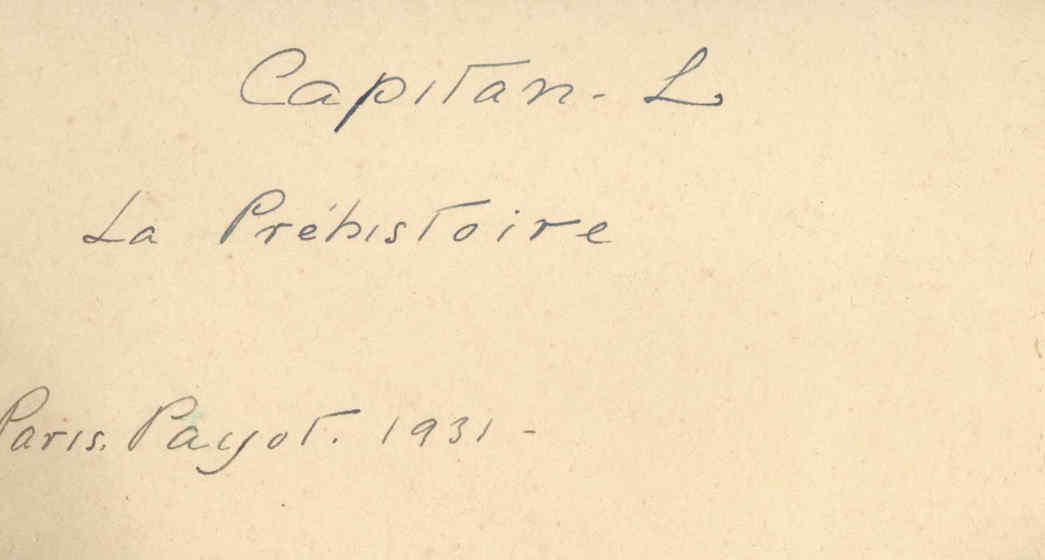 Capitan - L
La Préhistoire
Paris. Payot. 1931 -